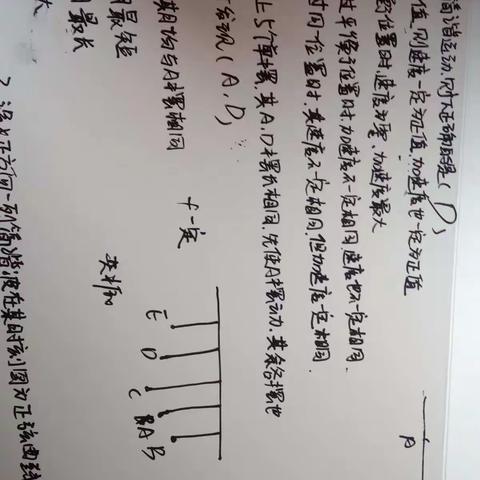 简谐运动,以下正确的是(D)
值,则速度一定为正值,加速度也一定为正值
位置时,速度为零,加速度最大
过平衡位置时,加速度不一定相同,速度也不一定相同.
过同一位置时,其速度不一定相同,但加速度一定相同.
上5个单摆,其A、D摆长相同,先使A摆摆动,其余各摆也
(A、D)
期均与A摆相同
最短
最长
大
f一定
受
E
D
C
A
B
A
沿x正方向一列简谐波在某时刻图为正弦曲线